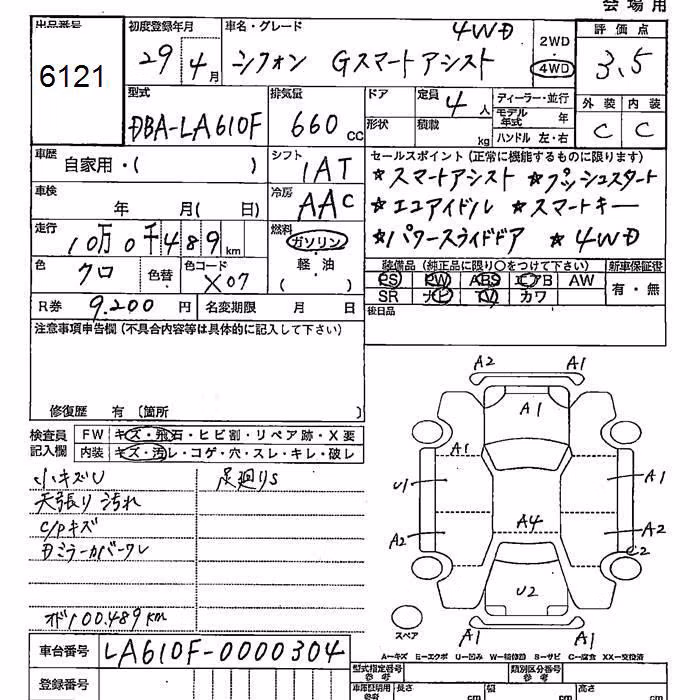 会場用
出品番号
6121
初度登録年月
29年4月
車名・グレード
4WD
シフォン Gスマートアシスト
2WD
4WD
評価点
3.5
外装 内装
C C
型式
DBA-LA610F
排気量
660cc
ドア
形状
定員 4人
積載 kg
ディーラー・並行
モデル年式 年
ハンドル 左・右
車歴 自家用・( )
シフト
IAT
セールスポイント(正常に機能するものに限ります)
☆スマートアシスト ☆プッシュスタート
☆エコアイドル ☆スマートキー
☆パワースライドドア ☆4WD
車検 年 月( 日)
冷房
AAC
走行
10万0千489km
燃料
ガソリン
軽・油
( )
色 クロ 色替 色コード X07
装備品(純正品に限り○をつけて下さい) 新車保証書
PS PW ABS エアB AW 有・無
SR ナビ TV カワ
後日品
R券 9.200円 名変期限 月 日
注意事項申告欄(不具合内容等は具体的に記入して下さい)
修復歴 有〔箇所 〕
検査員記入欄
FW キズ・飛石・ヒビ割・リペア跡・X要
内装 キズ・汚レ・コゲ・穴・スレ・キレ・破レ
小キズU 足廻りS
天張り汚れ
C/Pキズ
Dミラーカバーワレ
オド100.489km
A2 A1
A1
A1 A1
U1
A2 A4 A2
C2
U2
A1 A1
スペア
A-キズ E-エクボ U-凹み W-補修跡 S-サビ C-腐食 XX-交換済
車台番号 LA610F-0000304
登録番号
型式指定番号 参考
類別区分番号 参考
車庫証明用 参考 長さ cm 幅 cm 高さ cm